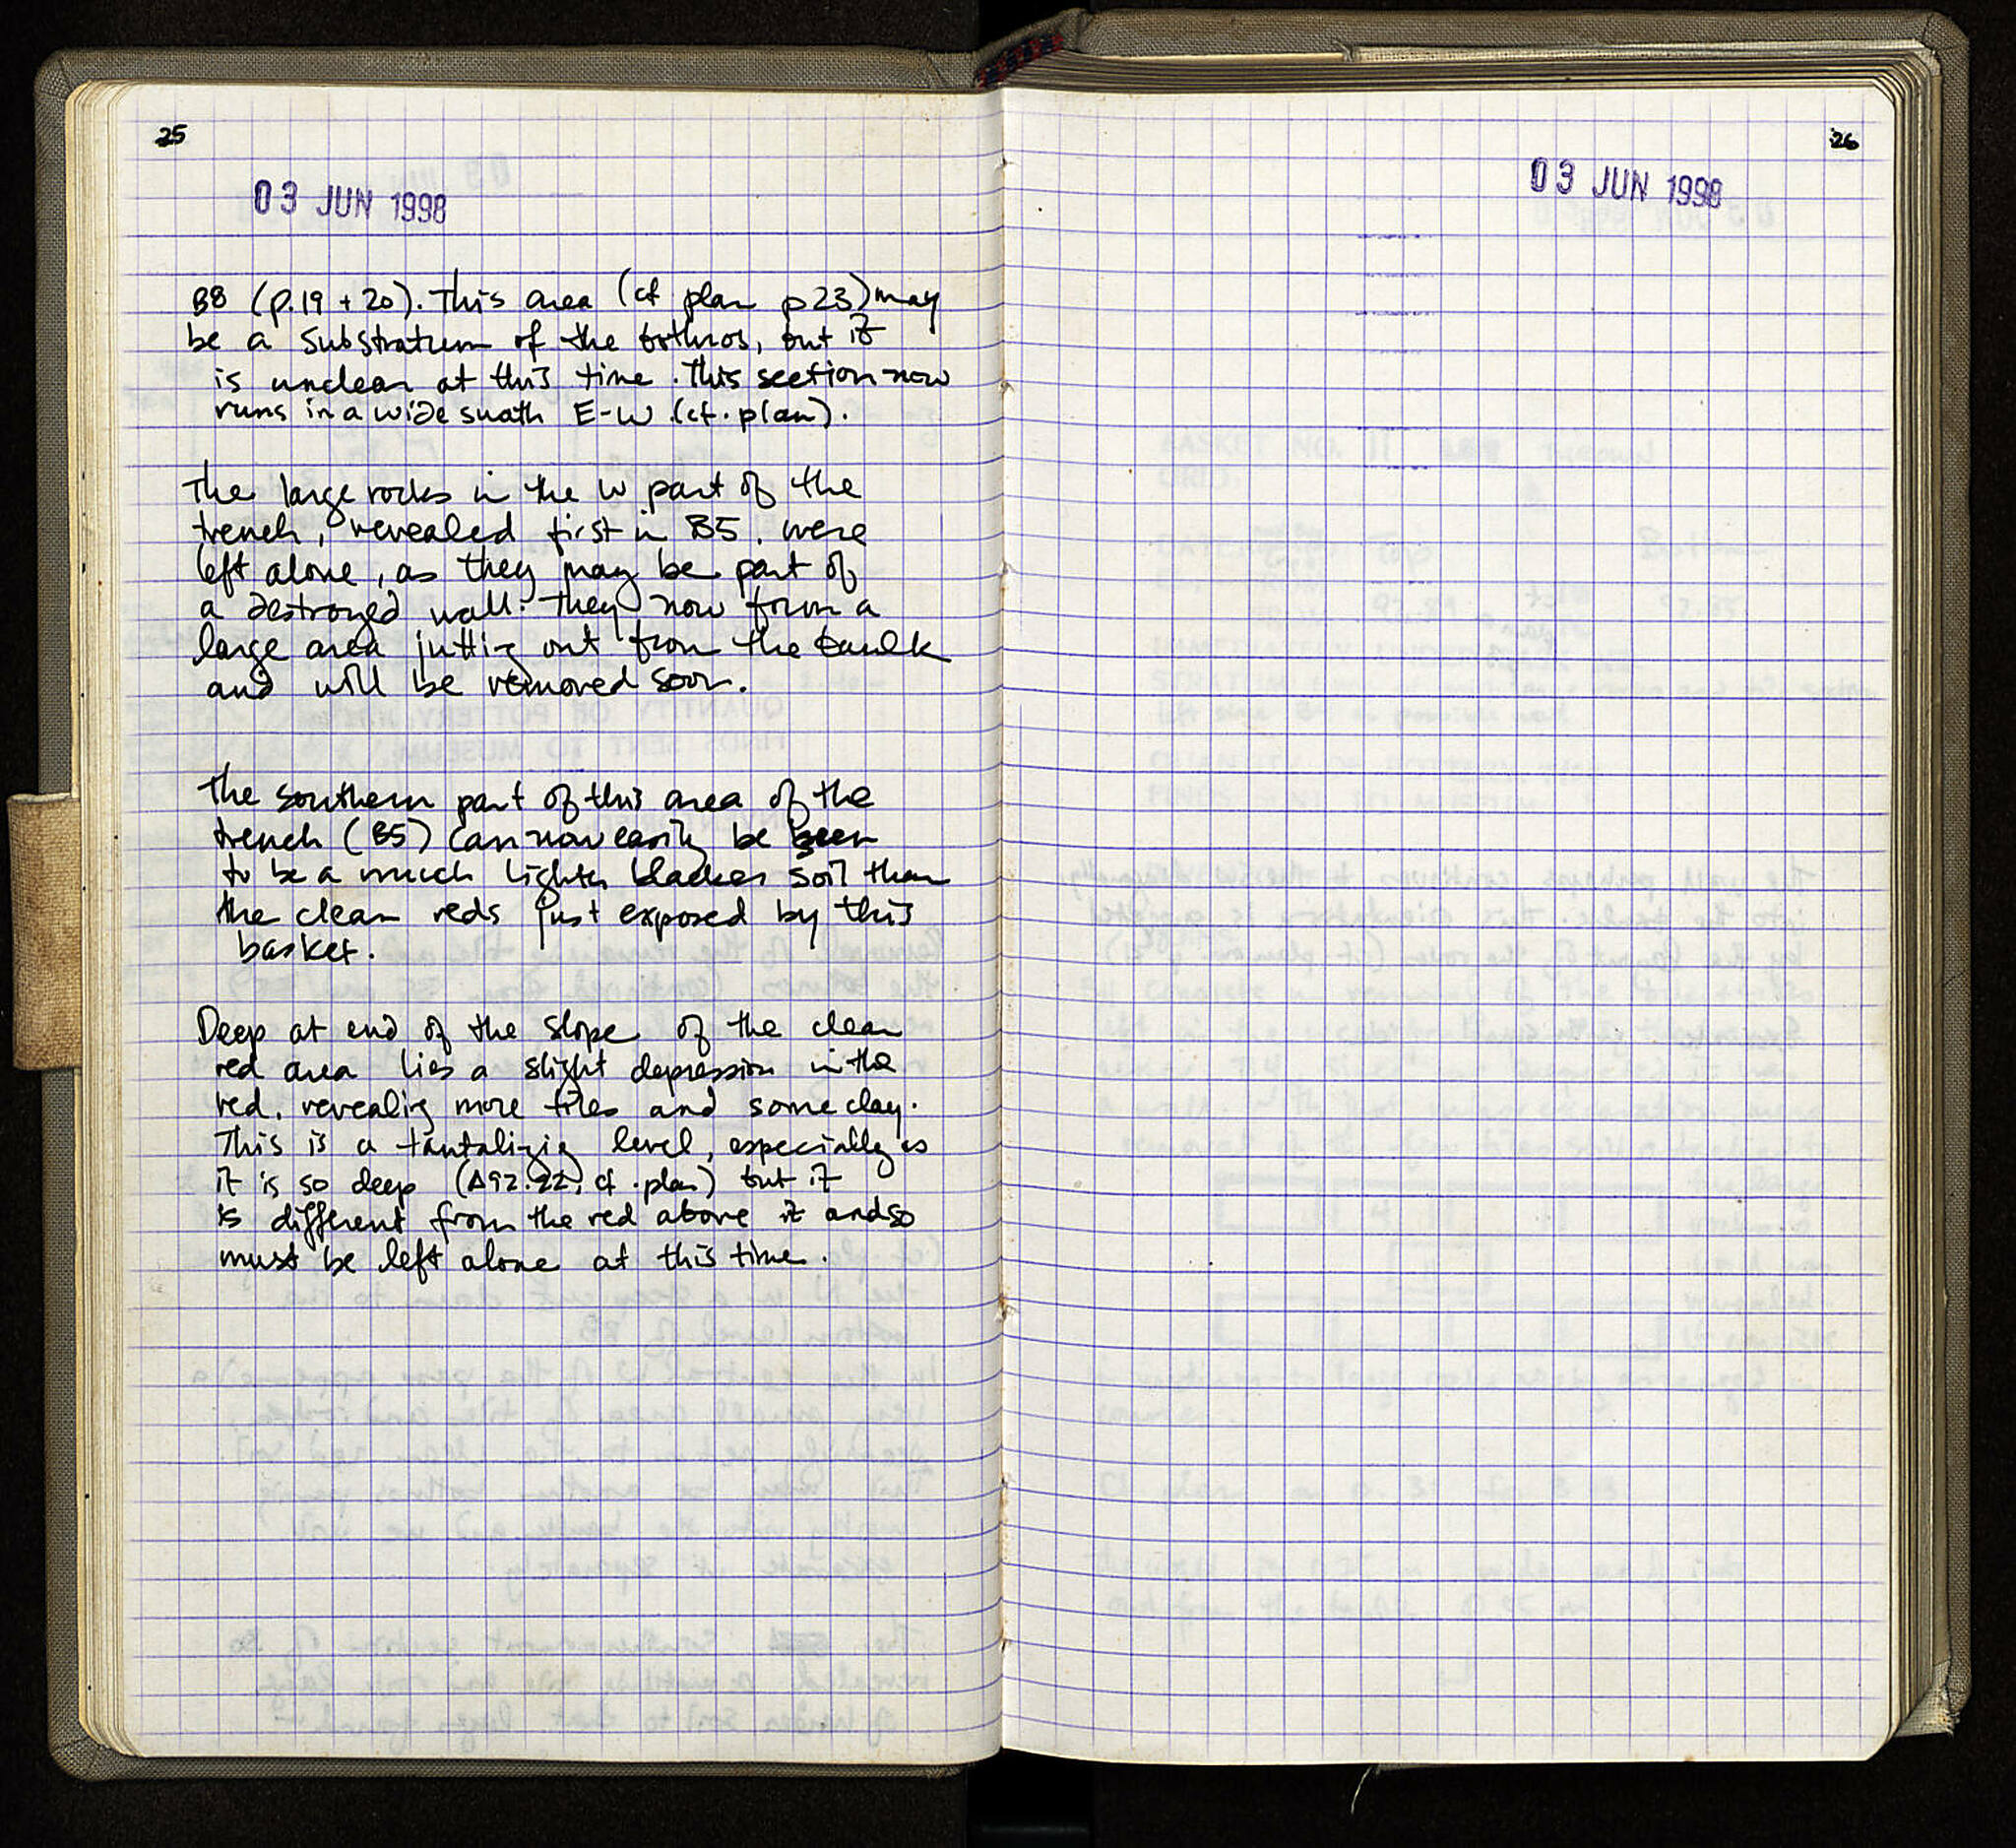 25
03 JUN 1998
B8 (p.19 + 20). This area (cf plan p23) may
be a substratum of the bothros, but it
is unclear at this time. This section now
runs in a wide swath E-W (cf. plan).
The large rocks in the W part of the
trench, revealed first in B5, were
left alone, as they may be part of
a destroyed wall. They now form a
large area jutting out from the baulk
and will be removed soon.
The southern part of this area of the
trench (B5) can now easily be seen
to be a much lighter blacker soil than
the clean reds just exposed by this
basket.
Deep at end of the slope of the clean
red area lies a slight depression in the
red, revealing more tiles and some clay.
This is a tantalizing level, especially as
it is so deep (Δ92.22, cf. plan) but it
is different from the red above it and so
must be left alone at this time.
26
03 JUN 1998